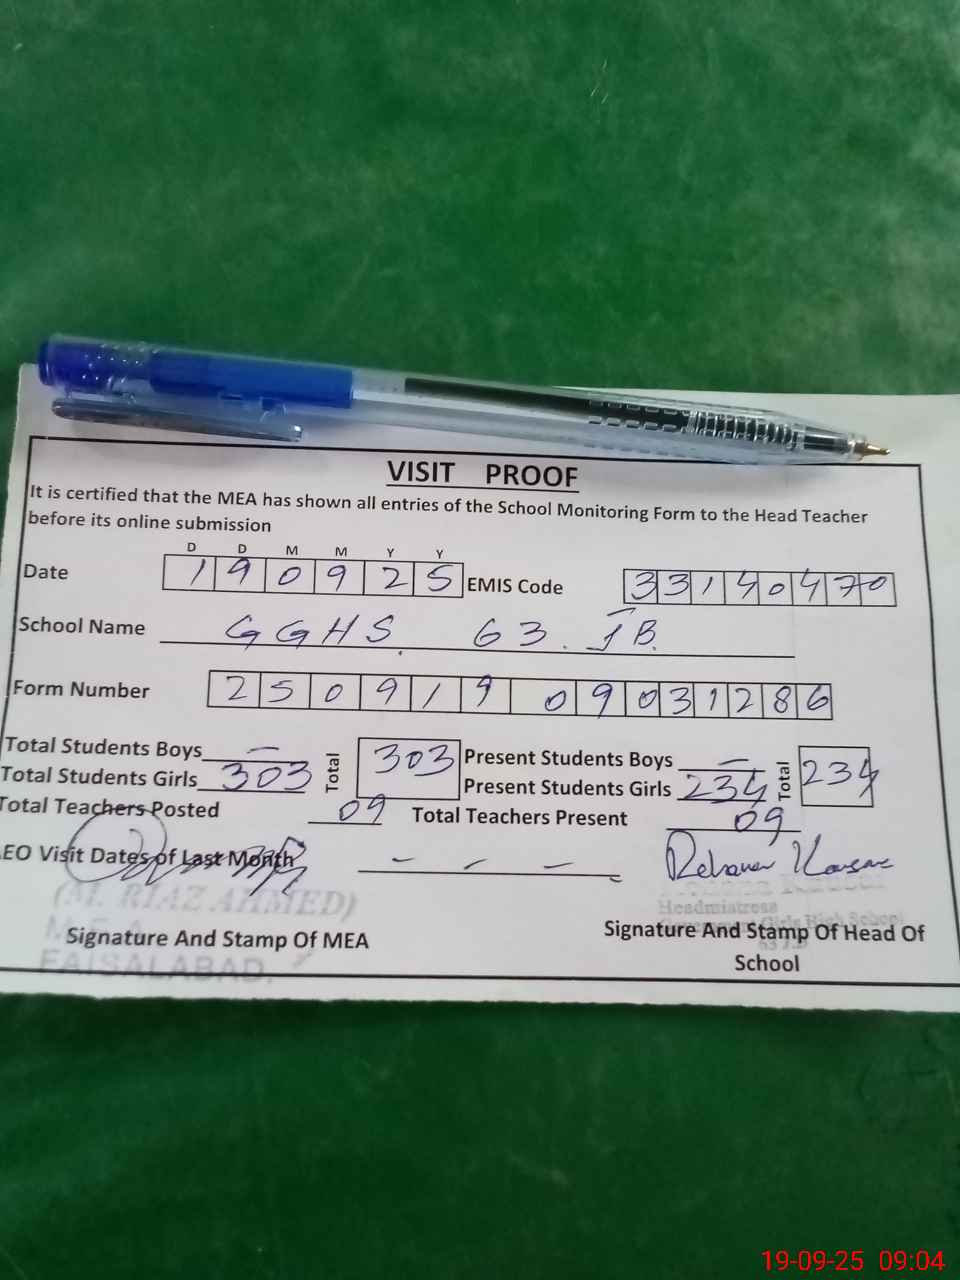 VISIT PROOF
It is certified that the MEA has shown all entries of the School Monitoring Form to the Head Teacher
before its online submission
D D M M Y Y
Date 190925 EMIS Code 33140470
School Name GGHS. 63. JB.
Form Number 250919 09031286
Total Students Boys — Total 303 Present Students Boys — Total 234
Total Students Girls 303 Present Students Girls 234
Total Teachers Posted 09 Total Teachers Present 09
AEO Visit Dates of Last Month - - -
(M. RIAZ AHMED)
M.E.A
FAISALABAD.
Signature And Stamp Of MEA
Rehana Kausar
Headmistress
Government Girls High School
63 J.B
Signature And Stamp Of Head Of
School
19-09-25 09:04